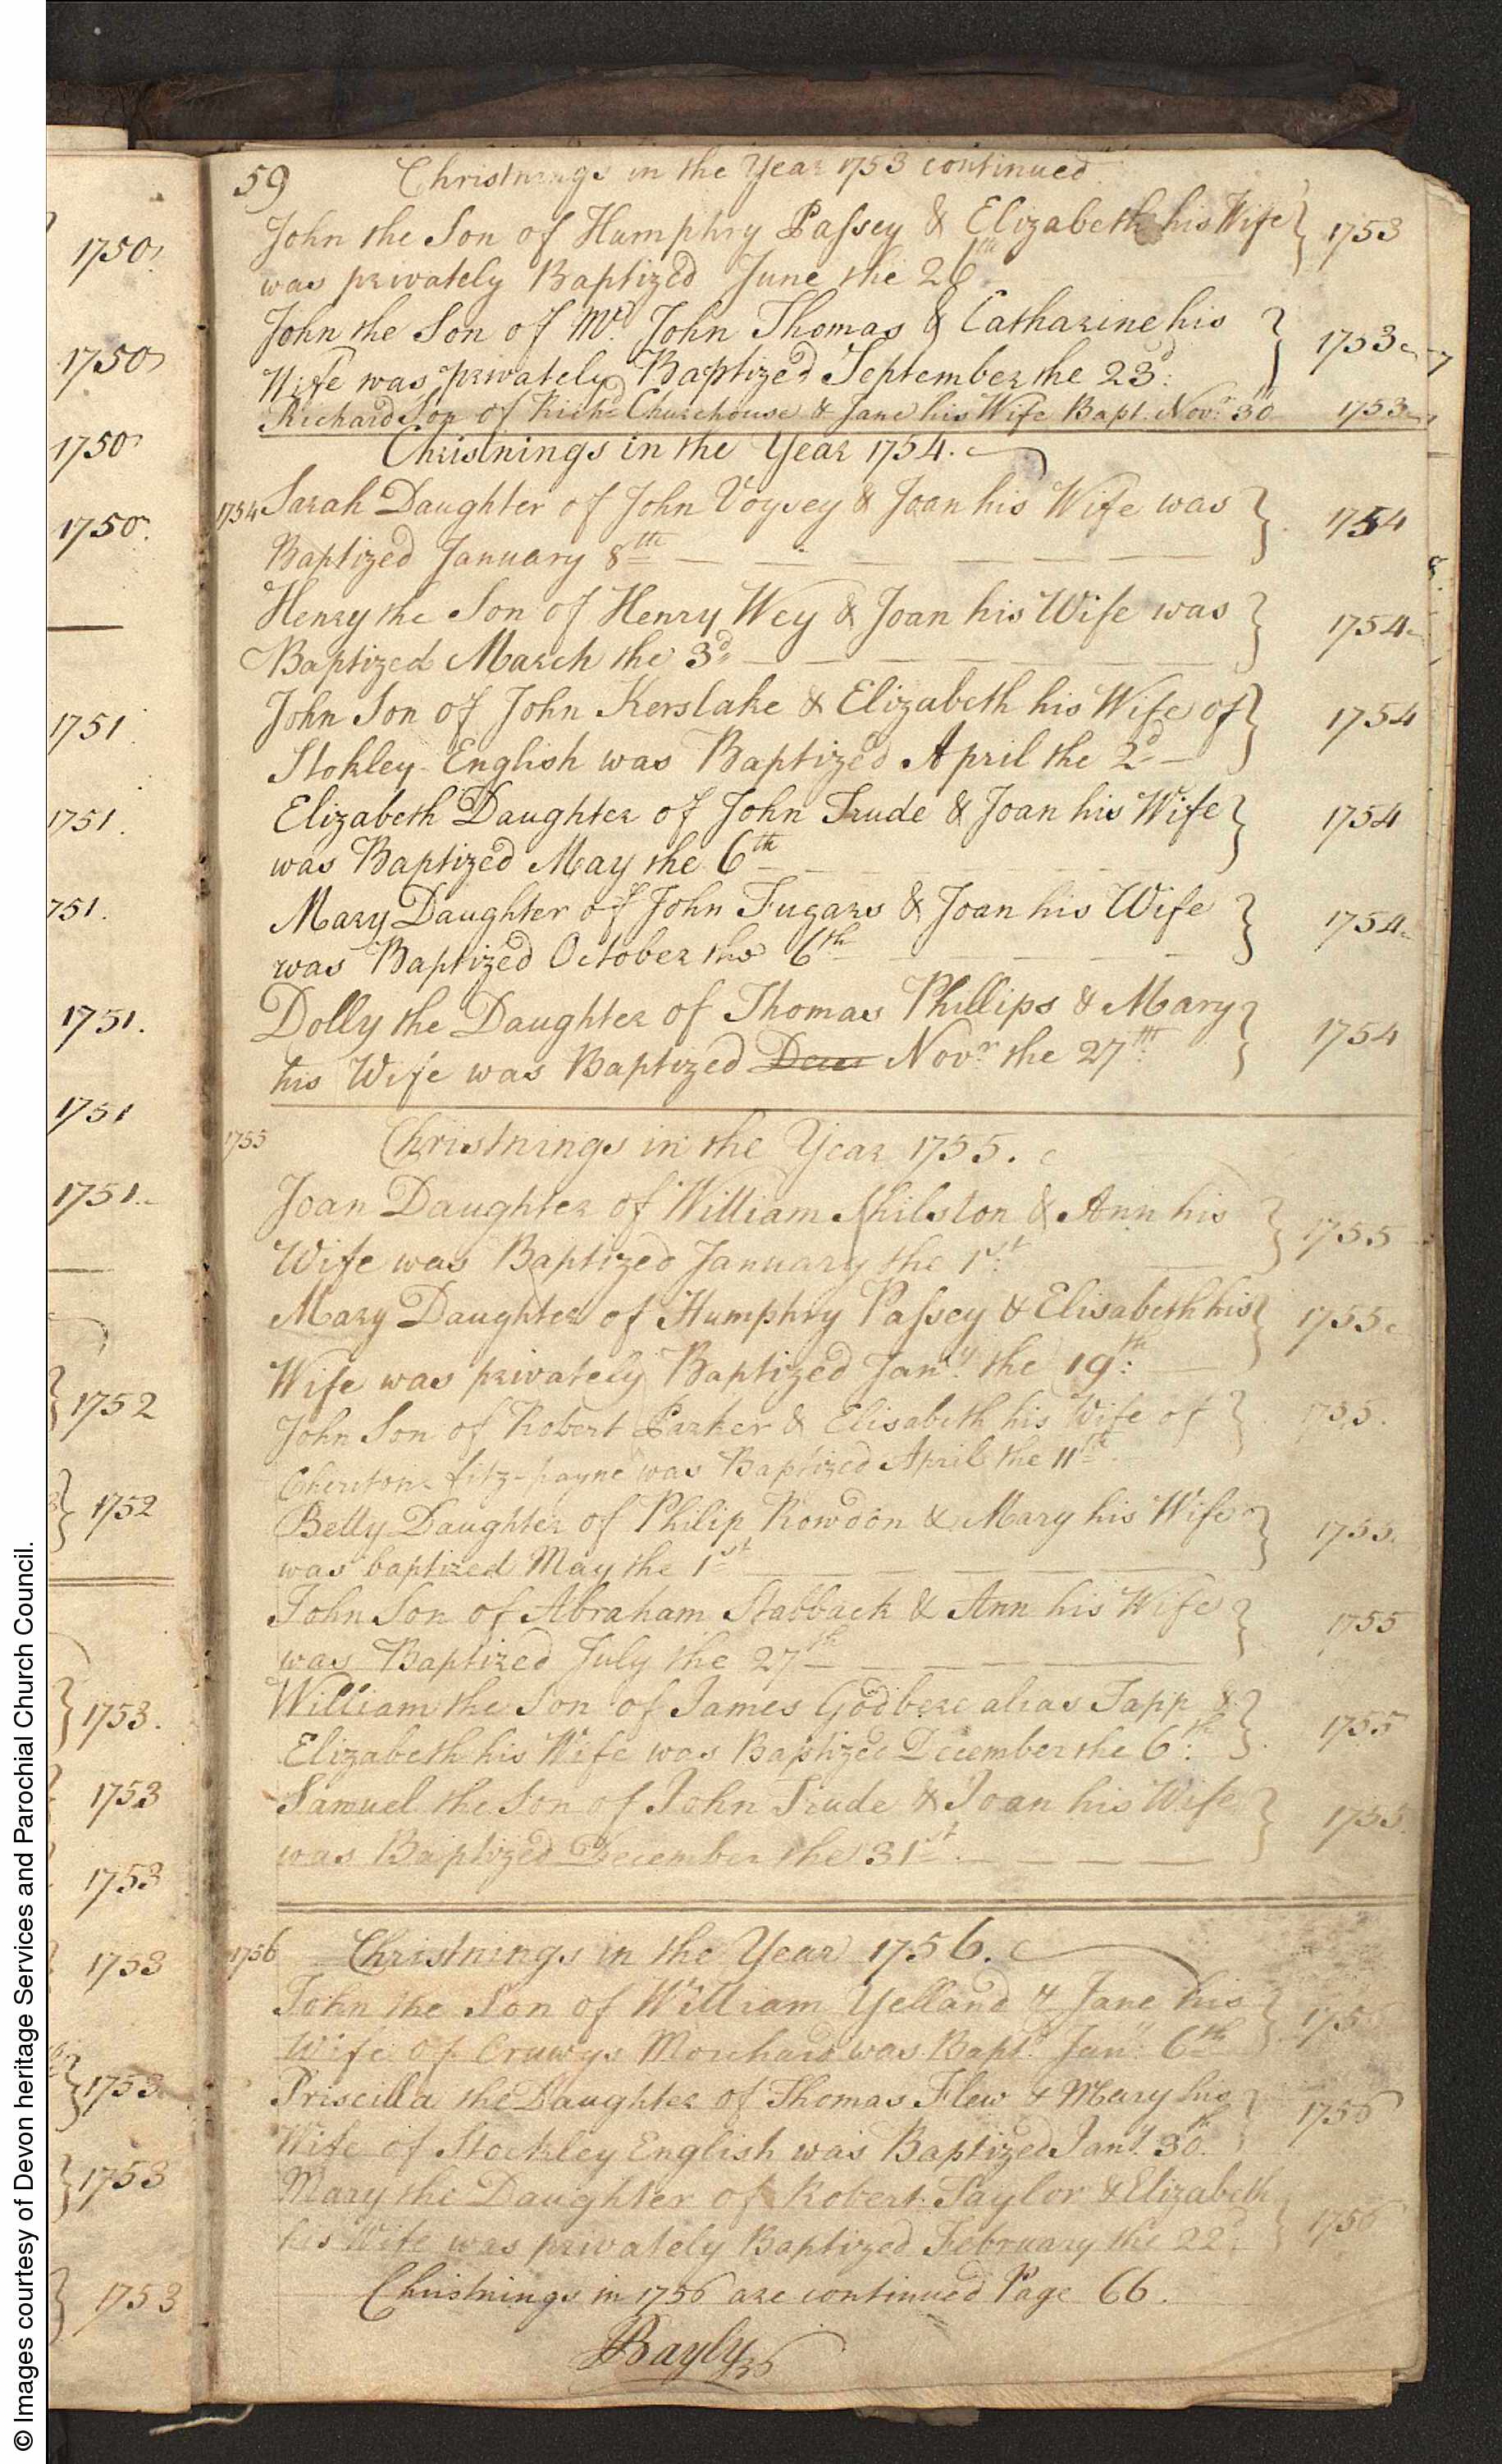 © Images courtesy of Devon heritage Services and Parochial Church Council.
1750
1750
1750
1750
1751
1751
751
1751.
1751
1751
1752
1752
1753.
1753
1753
1753
1753
1753
1753
59 Christnings in the Year 1753 continued
John the Son of Humphry Passey & Elizabeth his Wife 1753
was privately Baptized June the 26th
John the Son of Mr. John Thomas & Catharine his 1753
Wife was privately Baptized September the 23d:
Richard Son of Richd Churchouse & Jane his Wife Bapt. Novr 30 1753
Christnings in the Year 1754.
1754 Sarah Daughter of John Voysey & Joan his Wife was 1754
Baptized January 8th
Henry the Son of Henry Wey & Joan his Wife was 1754
Baptized March the 3d
John Son of John Kerslake & Elizabeth his Wife of 1754
Stokley English was Baptized April the 2d
Elizabeth Daughter of John Trude & Joan his Wife 1754
was Baptized May the 6th
Mary Daughter of John Fugars & Joan his Wife 1754
was Baptized October the 6th
Dolly the Daughter of Thomas Phillips & Mary 1754
his Wife was Baptized Novr the 27th
1755 Christnings in the Year 1755.
Joan Daughter of William Shilston & Ann his 1755
Wife was Baptized January the 1st
Mary Daughter of Humphry Passey & Elisabeth his 1755
Wife was privately Baptized Jany. the 19th:
John Son of Robert Parker & Elisabeth his Wife of 1755.
Cheriton fitz-payne was Baptized April the 11th
Betty Daughter of Philip Rowdon & Mary his Wife 1755.
was baptized May the 1st
John Son of Abraham Stabback & Ann his Wife 1755
was Baptized July the 27th
William the Son of James Godbere alias Tapp & 1755
Elizabeth his Wife was Baptized December the 6th:
Samuel the Son of John Trude & Joan his Wife 1755.
was Baptized December the 31st.
1756 Christnings in the Year 1756.
John the Son of William Yelland & Jane his 1756
Wife of Cruwys Morchard was Bapt. Jany 6th
Priscilla the Daughter of Thomas Flew & Mary his 1756
Wife of Stockley English was Baptized Jany. 30th.
Mary the Daughter of Robert Taylor & Elizabeth 1756
his Wife was privately Baptized February the 22d.
Christnings in 1756 are continued Page 66.
Bayly